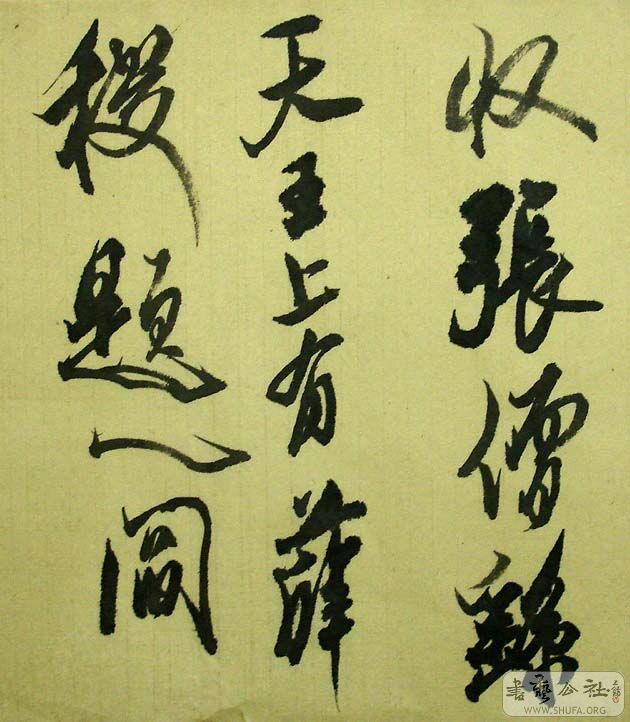 收張僧繇
天王上有薛
稷題一閻
書藝公社
WWW.SHUFA.ORG